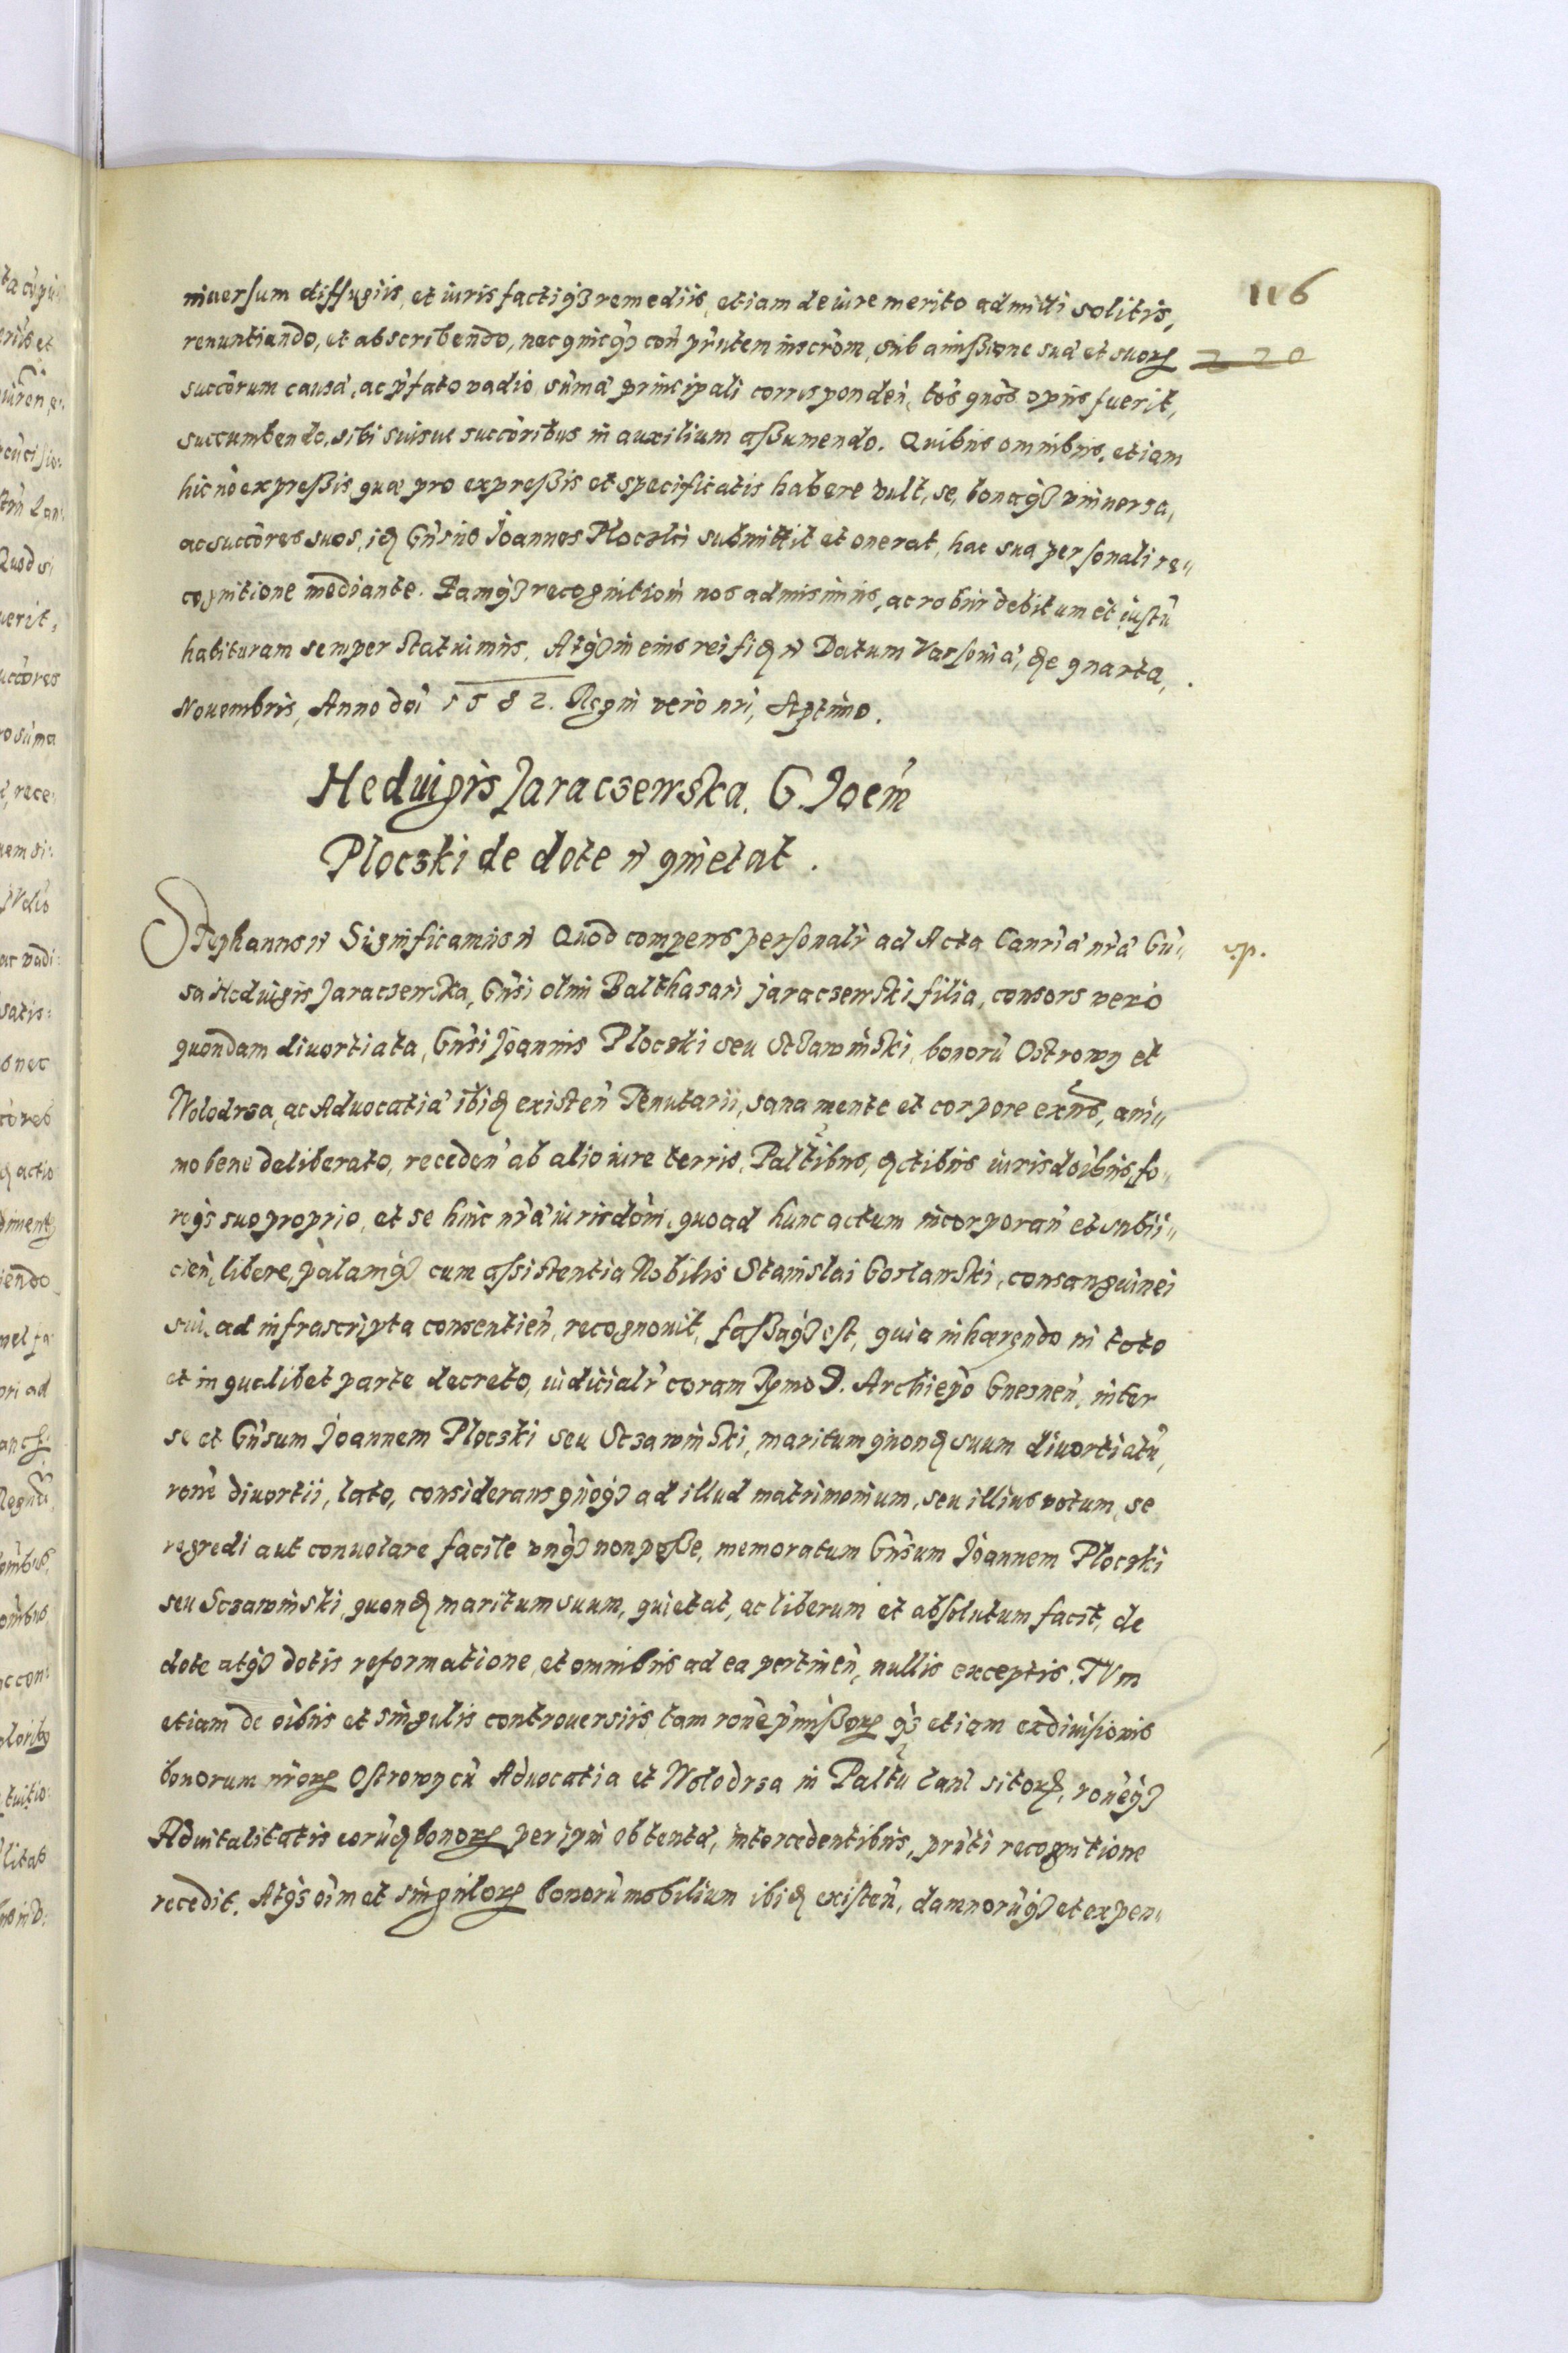 116
220
niuersum diffugiis, et iuris factiq3 remediis, etiam de iure merito admitti solitis,
renuntiando, et abscribendo, nec quicq3 con̄ pr̄ntem inscrōm, sub amißione sua et suorꝝ
succōrum causa, ac p̄fato vadio, sūma principali corresponden̄, tōs quōs opus fuerit,
succumbendo, sibi suisue succōribus in auxilium aßumendo. Quibus omnibus, etiam
hic nō expreßis, quæ pro expreßis et specificatis habere vult, se, bonaq3 vniuersa,
ac succōres suos, idꝫ Gn̄sus Joannes Plocski submittit et onerat, hac sua personali re„
cognitione mediante. Qamq3 recognitiom̄ nos admisimus, ac robur debitum et iustū
habituram semper statuimus. Atq3 in eius rei fidꝫ ꝛc Datum Varsouiæ, die quarta,
Nouembris, Anno doī 1582. Regni vero nrī, septimo.
Heduigis Jaraczewska. G. Joem̄
Ploczki de dote ꝛc quietat.
Stephanus ꝛc Significamus ꝛc Quod comperens personalr̄ ad Acta Canriæ nr̄æ Gn̄„
sa Heduigis Jaraczewska, Gn̄si olim Balthasari Jaraczewski filia, consors vero
quondam diuortiata, Gn̄si Joannis Ploczki seu Sczawinski, bonorū Ostrowy et
Wolodrza, ac Aduocatiæ ibidꝫ existen̄ Tenutarii, sana mente et corpore exn̄s, ani„
mo bene deliberato, receden̄ ab alio iure terris, Paltībus, dictibus iurisdoībus, fo„
roq3 suo proprio, et se huic nr̄æ iurisdōni, quoad hunc actum incorporan̄ et subii„
cien̄, libere, palamq3 cum assistentia Nobilis Stanislai Gorlawski, consanguinei
sui, ad infrascripta consentien̄, recognouit, faßaq3 est, quia inhærendo in toto
et in qualibet parte decreto, iudicialr̄ coram Rꝑmo D. Archiepō Gnesnen̄, inter
se et Gn̄sum Joannem Ploczki seu Sczawinski, maritum quondꝫ suum diuortiatū,
rōne diuortii, lato, considerans quoq3 ad illud matrimonium, seu illius votum, se
regredi aut conuolare facile vnq3 non poße, memoratum Gn̄sum Joannem Ploczki
seu Sczawinski, quondꝫ maritum suum, quietat, ac liberum et absolutum facit, de
dote atq3 dotis reformatione, et omnibus ad ea pertinen̄, nullis exceptis. Tum
etiam de oībus et singulis controuersiis, tam rōne p̄mißorꝝ q̄3 etiam exdiuisionis
bonorum nr̄orꝝ Ostrowy cū Aduocatia et Wolodrza in Paltū Lanc̄ sitorꝝ, rōneq3
Aduitalitatis eorūdꝫ bonorꝝ per ipm̄ obtentæ, intercedentibus, prn̄ti recognitione
recedit. Atq3 oīm et singulorꝝ bonorū mobilium ibidꝫ existen̄, damnorūq3 et expen„